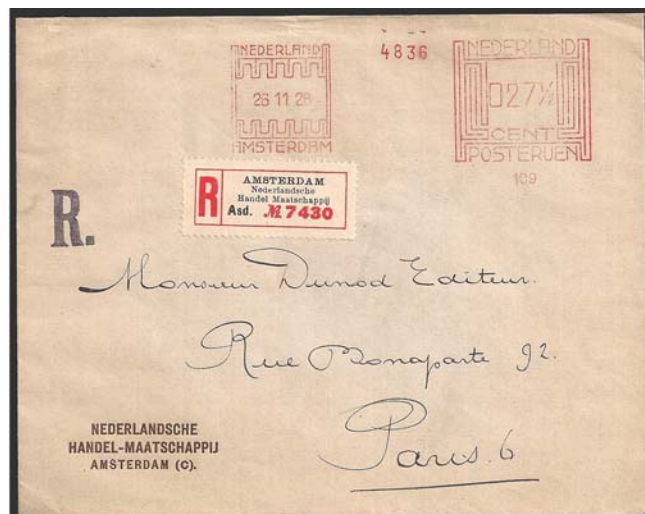 NEDERLAND
26 11 28
AMSTERDAM
4836
NEDERLAND
027½
CENT
POSTERIJEN
109
R
AMSTERDAM
Nederlandsche
Handel Maatschappij
Asd. № 7430
R.
Monsieur Dunod Editeur.
Rue Bonaparte 92.
Paris. 6
NEDERLANDSCHE
HANDEL-MAATSCHAPPIJ
AMSTERDAM (C).